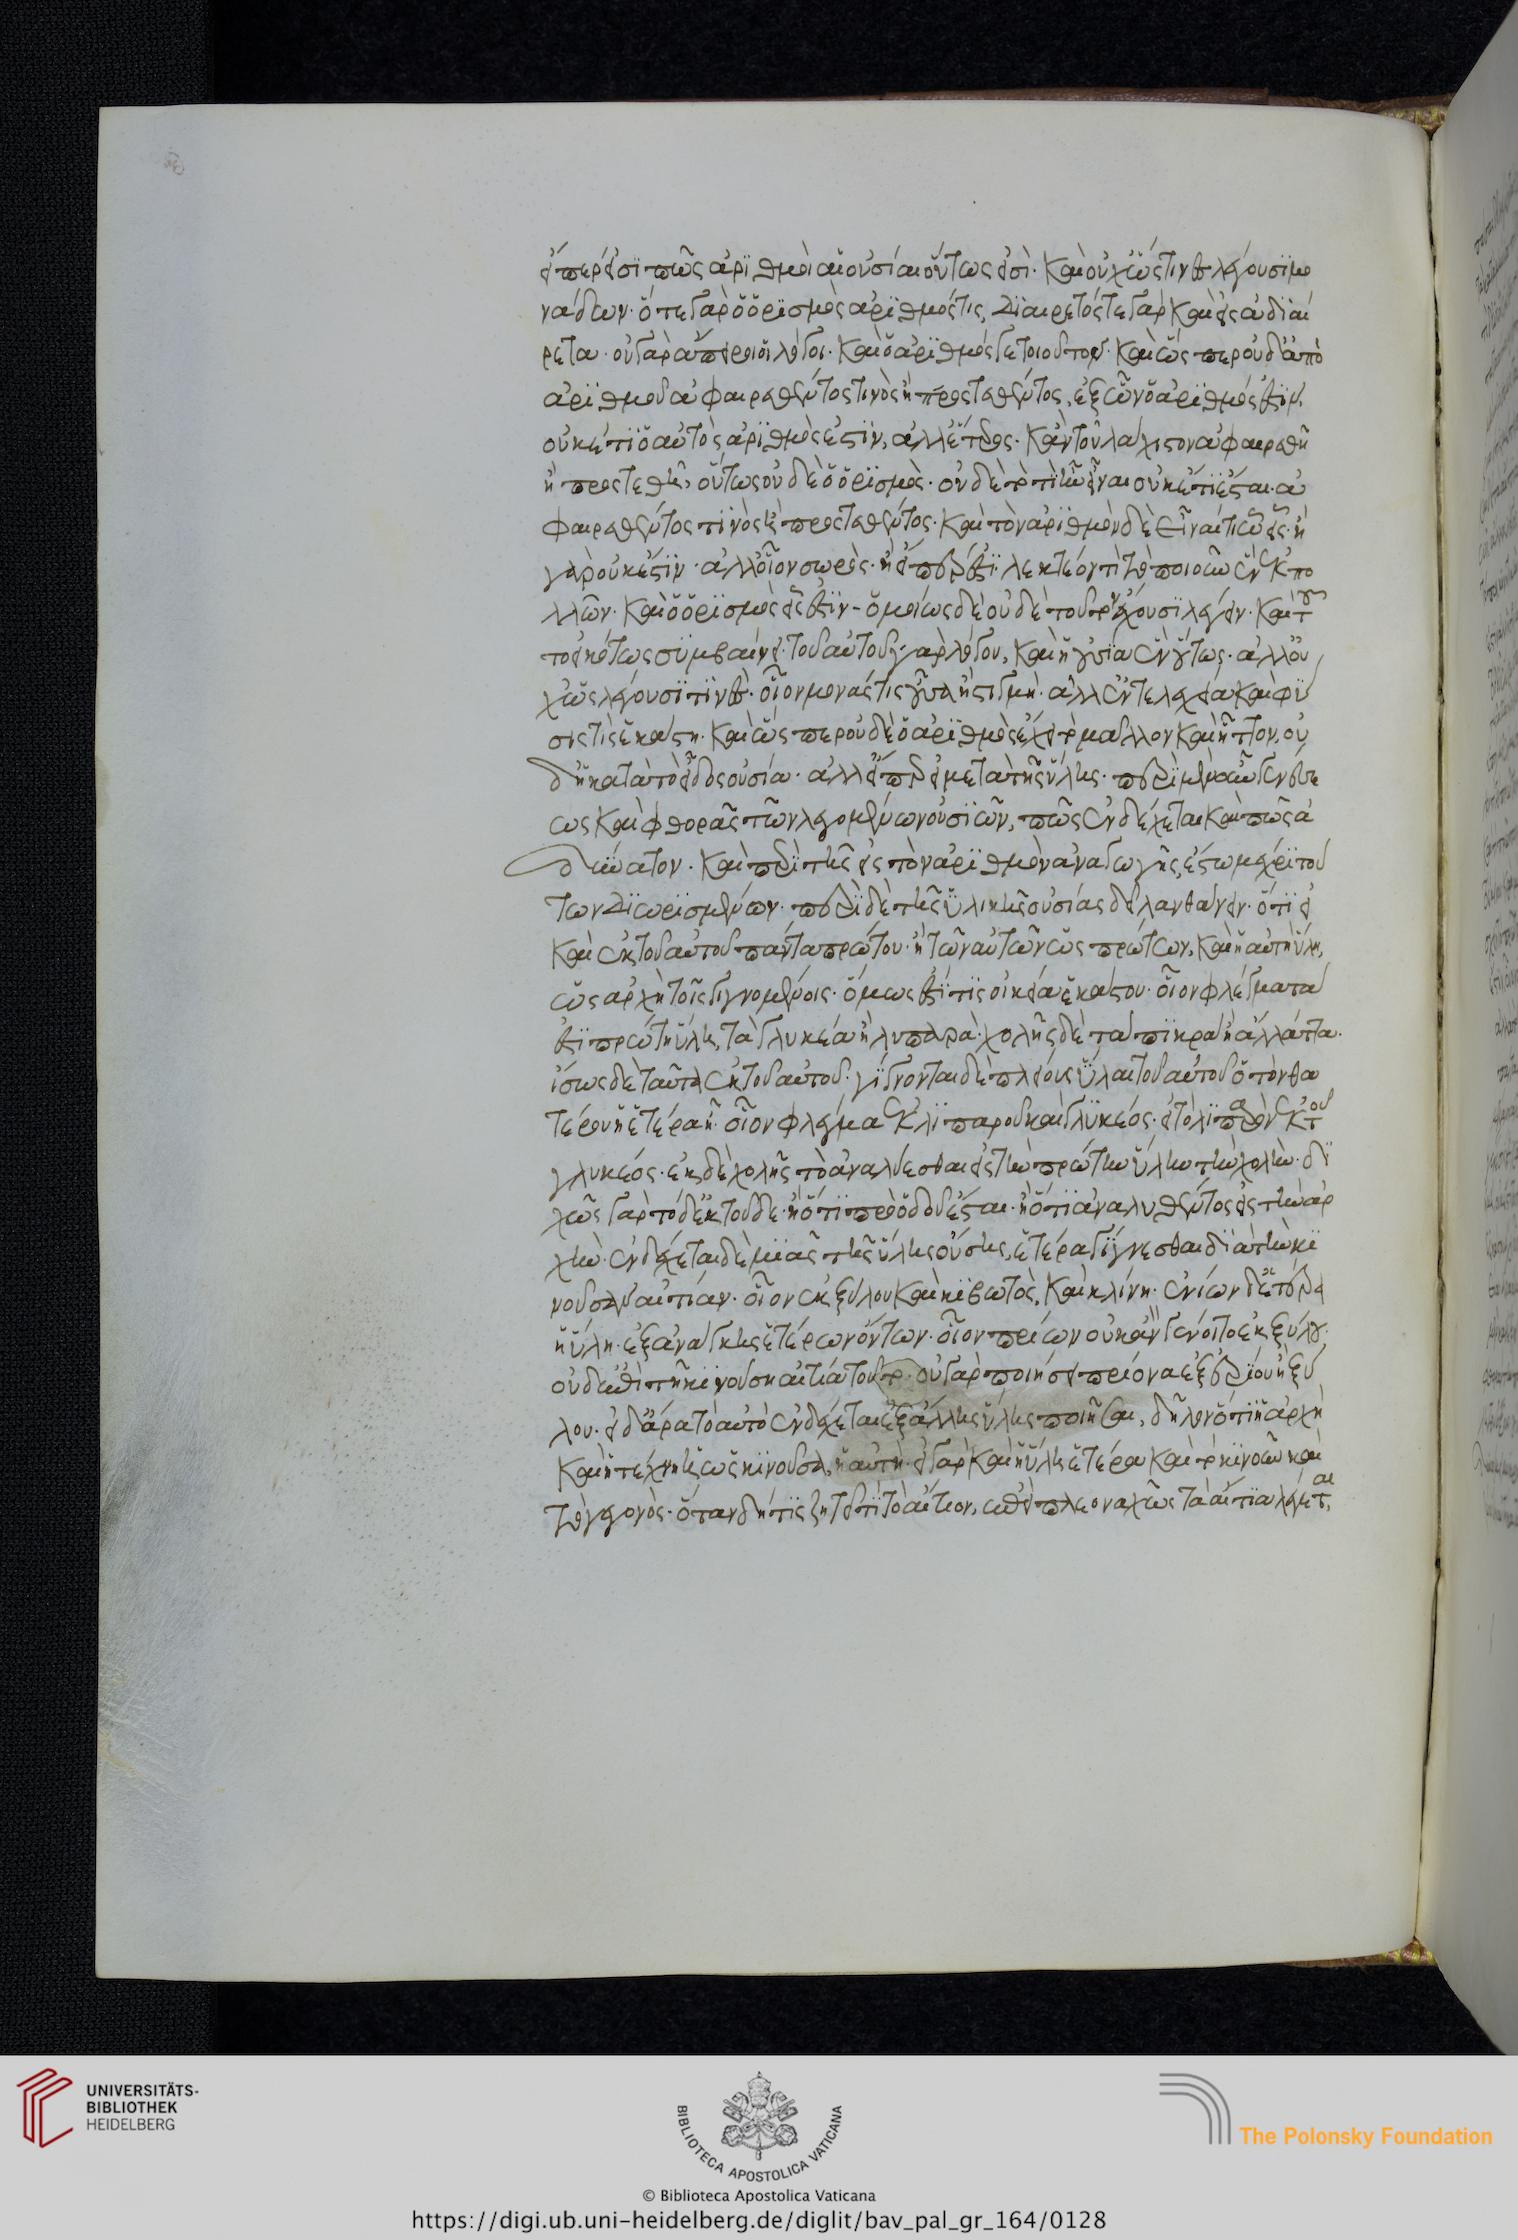 εἴπερ εἰσὶ πῶς ἀριθμοὶ αἱ οὐσίαι οὕτως εἰσὶ· καὶ οὐχ ὥς τινες λέγουσι μο
νάδων· ὅ τε γὰρ ὁ ὁρισμὸς ἀριθμός τις, διαιρετός τε γὰρ καὶ εἰς ἀδιαί
ρετα· οὐ γὰρ ἄπειροι οἱ λόγοι· καὶ ὁ ἀριθμὸς δὲ τοιοῦτον· καὶ ὥσπερ οὐδ' ἀπὸ
ἀριθμοῦ ἀφαιρεθέντος τινὸς ἢ προστεθέντος, ἐξ ὧν ὁ ἀριθμός ἐστιν,
οὐκέτι ὁ αὐτὸς ἀριθμὸς ἐστὶν, ἀλλ' ἕτερος· κἂν τοὐλάχιστον ἀφαιρεθῇ
ἢ προστεθῇ, οὕτως οὐδὲ ὁ ὁρισμὸς· οὐδὲ τὸ τί ἦν εἶναι οὐκέτι ἔσται· ἀ
φαιρεθέντος τινὸς ἢ προστεθέντος· καὶ τὸν ἀριθμὸν δεῖ εἶναί τι ᾧ εἷς· ἢ
γὰρ οὐκ ἔστιν· ἀλλ' οἷον σωρὸς· ἢ εἴπερ ἐστὶ λεκτέον τί τὸ ποιοῦν ἓν ἐκ πο
λλῶν· καὶ ὁ ὁρισμὸς εἷς ἐστὶν· ὁμοίως δὲ οὐδὲ τοῦτον ἔχουσι λέγειν· καὶ τοῦ
το εἰκότως συμβαίνει· τοῦ αὐτοῦ γὰρ λόγου, καὶ ἡ οὐσία ἓν οὕτως· ἀλλ' οὐ
χ ὡς λέγουσί τινες· οἷον μονάς τις οὖσα ἢ στιγμὴ· ἀλλ' ἐντελέχεια καὶ φύ
σις τὶς ἑκάστη· καὶ ὥσπερ οὐδὲ ὁ ἀριθμὸς ἔχει τὸ μᾶλλον καὶ ἧττον, οὐ
δ' ἡ κατὰ τὸ εἶδος οὐσία· ἀλλ' εἴπερ ἡ μετὰ τῆς ὕλης· περὶ μὲν οὖν γενέσε
ως καὶ φθορᾶς τῶν λεγομένων οὐσιῶν, πῶς ἐνδέχεται καὶ πῶς ἀ
δύνατον· καὶ περὶ τῆς εἰς τὸν ἀριθμὸν ἀναγωγῆς, ἔστω μέχρι τού
των διωρισμένον· περὶ δὲ τῆς ὑλικῆς οὐσίας δεῖ λανθάνειν· ὅτι εἰ
καὶ ἐκ τοῦ αὐτοῦ πάντα πρώτου· ἢ τῶν αὐτῶν ὡς πρώτων, καὶ ἡ αὐτὴ ὕλη,
ὡς ἀρχὴ τοῖς γιγνομένοις· ὅμως ἐστί τις οἰκεία ἑκάστου· οἷον φλέγματος
ἐστὶ πρώτη ὕλη, τὰ γλυκέα ἢ λιπαρὰ· χολῆς δὲ τὰ πικρὰ ἢ ἄλλ' ἄττα·
ἴσως δὲ ταῦτα ἐκ τοῦ αὐτοῦ· γίγνονται δὲ πλείους ὗλαι τοῦ αὐτοῦ ὅταν θα
τέρου ἡ ἑτέρα ᾖ· οἷον φλέγμα ἐκ λιπαροῦ καὶ γλυκέος· εἰ τὸ λιπαρὸν ἐκ τοῦ
γλυκέος· ἐκ δὲ χολῆς τὸ ἀναλύεσθαι εἰς τὴν πρώτην ὕλην τὴν χολὴν· δι
χῶς γὰρ τόδ' ἐκ τοῦδε· ἢ ὅτι πρὸ ὁδοῦ ἔσται· ἢ ὅτι ἀναλυθέντος εἰς τὴν ἀρ
χὴν· ἐνδέχεται δὲ μιᾶς τῆς ὕλης οὔσης, ἕτερα γίγνεσθαι διὰ τὴν κι
νοῦσαν αἰτίαν· οἷον ἐκ ξύλου καὶ κιβωτὸς, καὶ κλίνη· ἐνίων δ' ἑτέρα
ἡ ὕλη ἐξ ἀνάγκης ἑτέρων ὄντων· οἷον πρίων οὐκ ἂν γένοιτο ἐκ ξύλου·
οὐδ' ἐπὶ τῇ κινούσῃ αἰτίᾳ τοῦτο· οὐ γὰρ ποιήσει πρίονα ἐξ ἐρίου ἢ ξύ
λου· εἰ δ' ἄρα τὸ αὐτὸ ἐνδέχεται ἐξ ἄλλης ὕλης ποιῆσαι, δῆλον ὅτι ἡ ἀρχὴ
καὶ ἡ τέχνη ἡ ὡς κινοῦσα, ἡ αὐτὴ· εἰ γὰρ καὶ ἡ ὕλη ἑτέρα καὶ τὸ κινοῦν καὶ
τὸ γεγονὸς· ὅταν δή τις ζητῇ τί τὸ αἴτιον, ἐπεὶ πλεοναχῶς τὰ αἴτια λέγεται,
UNIVERSITÄTS-
BIBLIOTHEK
HEIDELBERG
BIBLIOTECA APOSTOLICA VATICANA
The Polonsky Foundation
© Biblioteca Apostolica Vaticana
https://digi.ub.uni-heidelberg.de/diglit/bav_pal_gr_164/0128